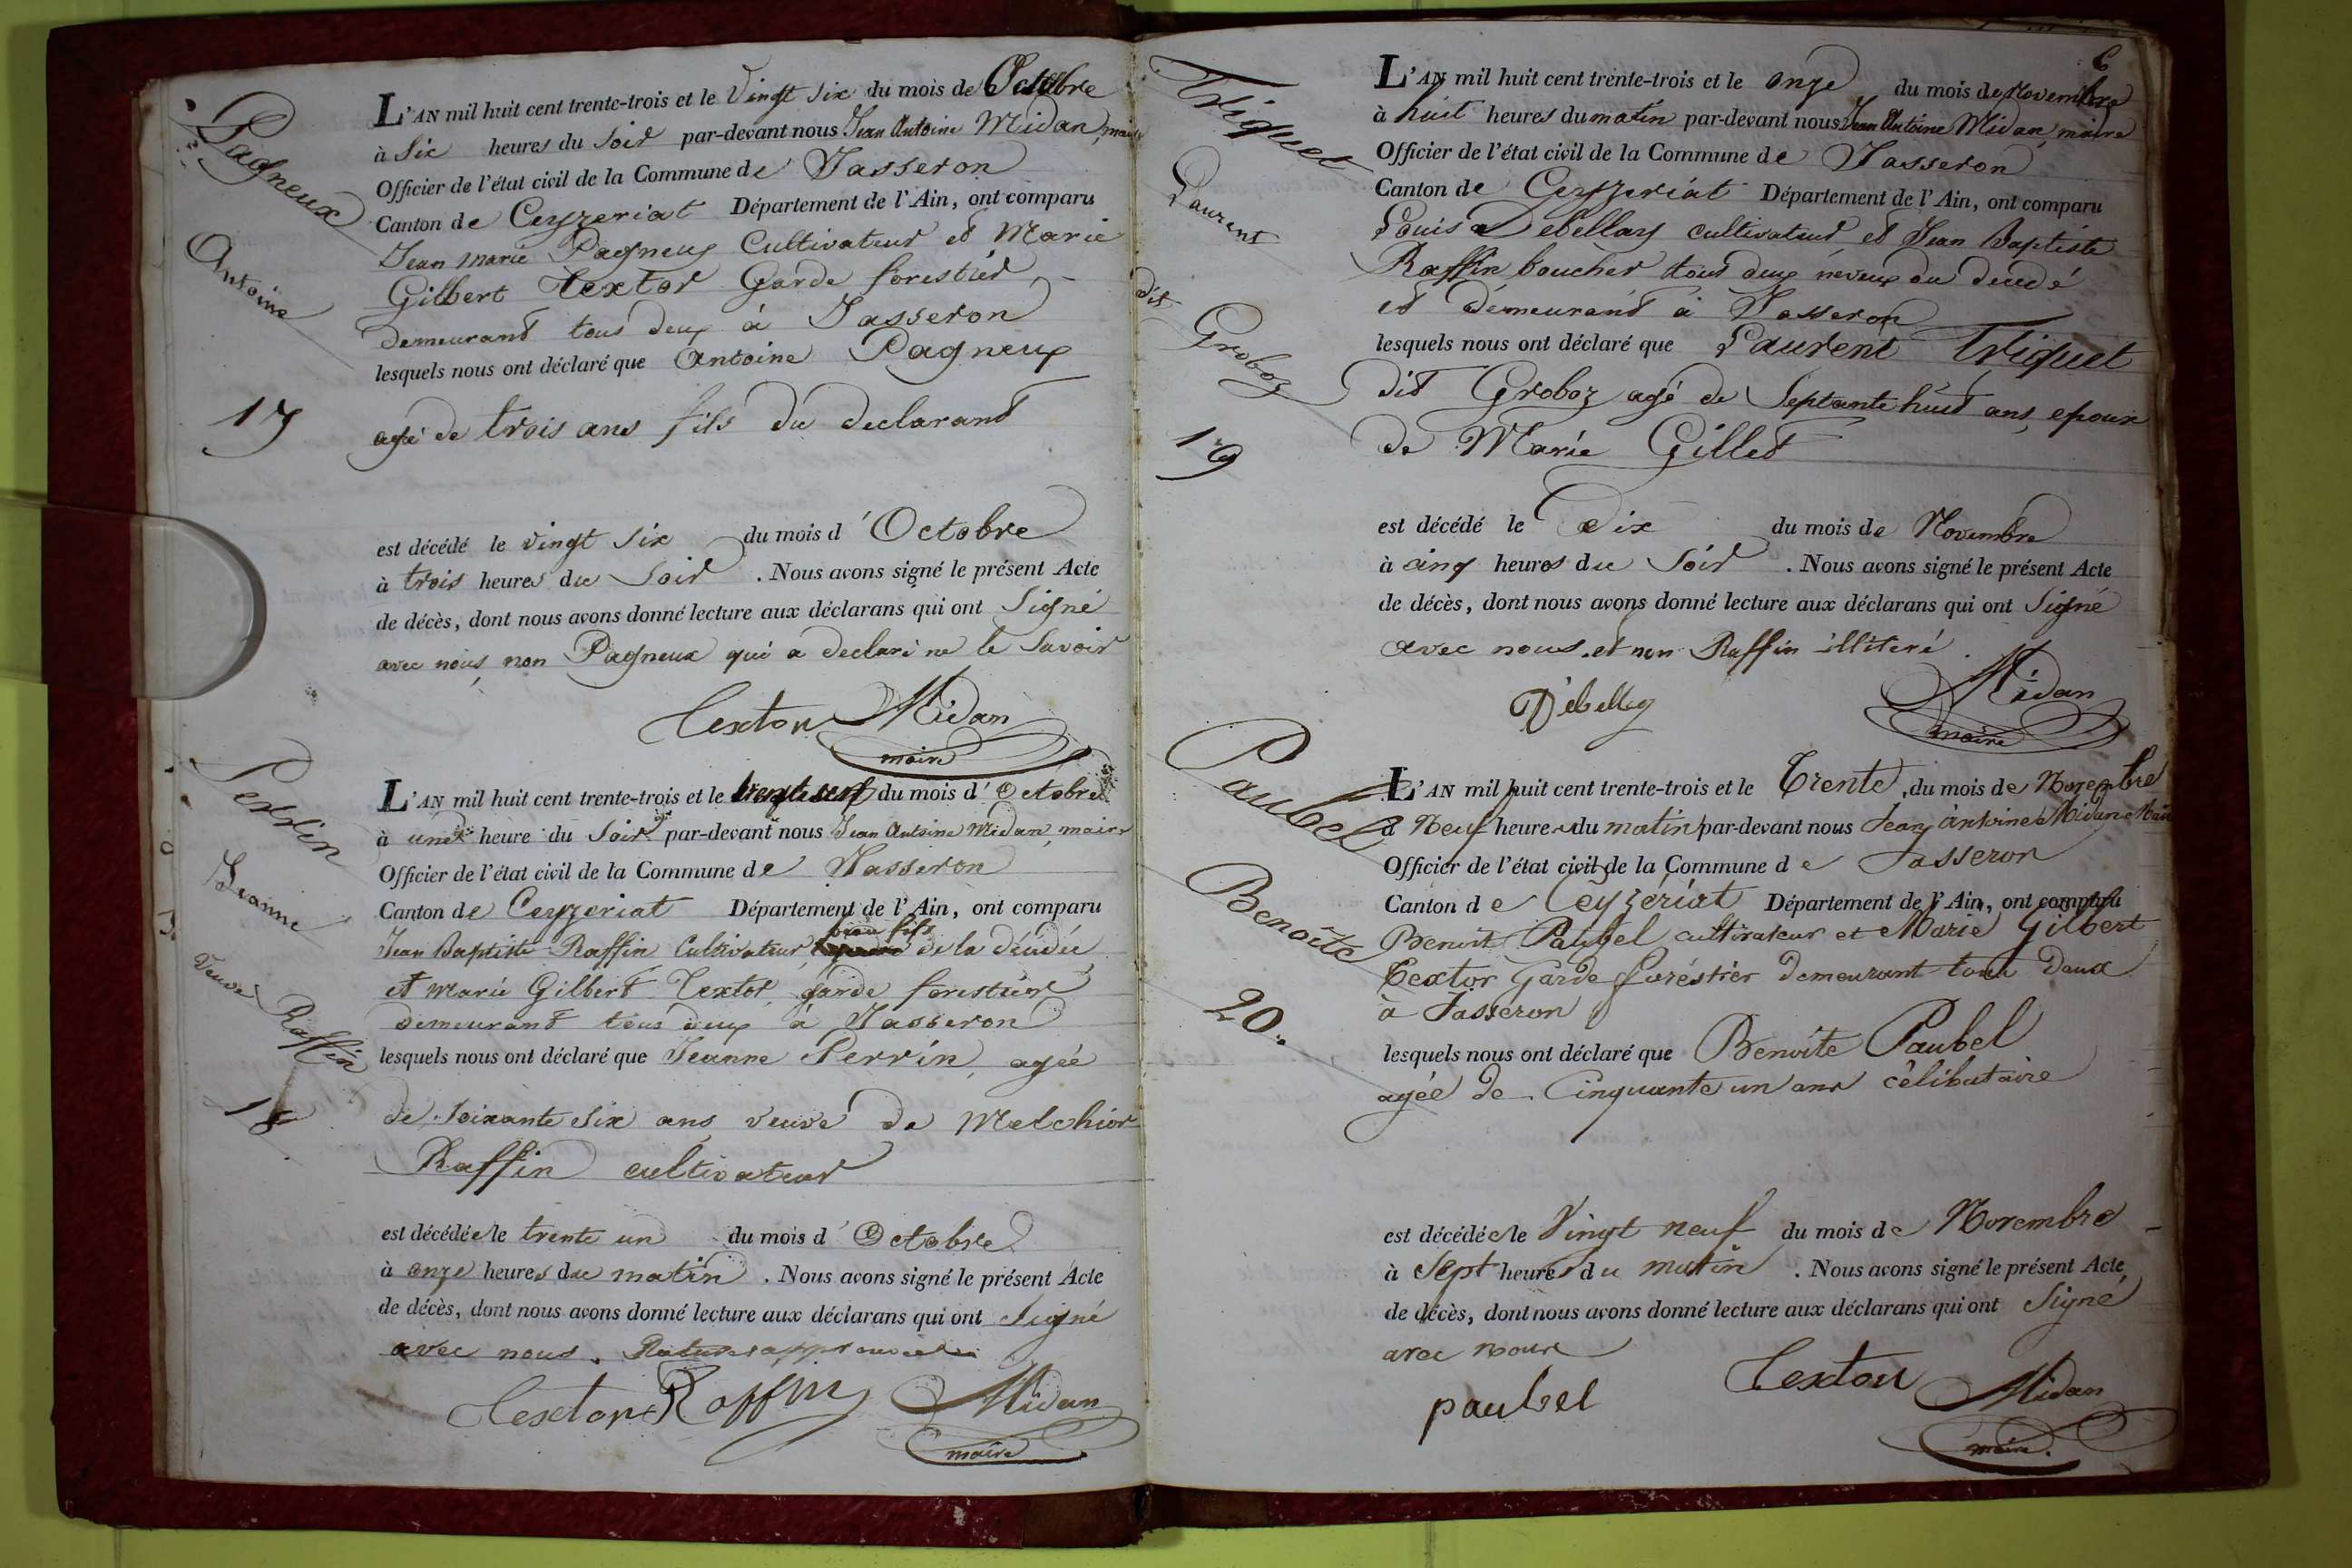 Pagneux
Antoine
17
L'AN mil huit cent trente-trois et le Vingt six du mois de Octobre
à Six heures du Soir par-devant nous Jean Antoine Midan, maire
Officier de l'état civil de la Commune de Jasseron
Canton de Ceyzeriat Département de l'Ain, ont comparu
Jean marie Pagneux Cultivateur et Marie
Gilbert Textor Garde forestier
demeurant tous deux à Jasseron
lesquels nous ont déclaré que Antoine Pagneux
agé de trois ans fils du declarant
est décédé le vingt six du mois d'Octobre
à trois heures du Soir . Nous avons signé le présent Acte
de décès, dont nous avons donné lecture aux déclarans qui ont Signé
avec nous, non Pagneux qui a declaré ne le Savoir
Textor Midan
maire
Perrin
Jeanne
veuve Raffin
18
L'AN mil huit cent trente-trois et le du mois d'Octobre
à une heure du Soir par-devant nous Jean Antoine Midan, maire
Officier de l'état civil de la Commune de Jasseron
Canton de Ceyzeriat Département de l'Ain, ont comparu
beau fils
Jean Baptiste Raffin Cultivateur de la décédée
et Marie Gilbert Textor garde forestier
demeurant tous deux à Jasseron
lesquels nous ont déclaré que Jeanne Perrin, agée
de soixante six ans veuve de Melchior
Raffin cultivateur
est décédée le trente un du mois d'Octobre
à onze heures du matin . Nous avons signé le présent Acte
de décès, dont nous avons donné lecture aux déclarans qui ont Signé
avec nous. Ratures approuvées
Textor Raffin Midan
maire
6
Triquet
Laurent
dit
Groboz
19
L'AN mil huit cent trente-trois et le onze du mois de Novembre
à huit heures du matin par-devant nous Jean Antoine Midan, maire
Officier de l'état civil de la Commune de Jasseron
Canton de Ceyzeriat Département de l'Ain, ont comparu
Louis Debellay cultivateur et Jean Baptiste
Raffin boucher tous deux neveux du decedé
et demeurant à Jasseron
lesquels nous ont déclaré que Laurent Triquet
dit Groboz agé de Septante huit ans, epoux
de Marie Gillet
est décédé le Dix du mois de Novembre
à cinq heures du Soir . Nous avons signé le présent Acte
de décès, dont nous avons donné lecture aux déclarans qui ont Signé
avec nous. et non Raffin illiteré
Debellay Midan
maire
Paubel
Benoîte
20.
L'AN mil huit cent trente-trois et le Trente, du mois de Novembre
à Neuf heures du matin par-devant nous Jean Antoine Midan Maire
Officier de l'état civil de la Commune de Jasseron
Canton de Ceyzériat Département de l'Ain, ont comparu
Benoit Paubel cultivateur et Marie Gilbert
Textor Garde foréstier demeurant tous deux
à Jasseron
lesquels nous ont déclaré que Benoîte Paubel
agée de Cinquante un ans célibataire
est décédée le Vingt neuf du mois de Novembre
à Sept heures du matin . Nous avons signé le présent Acte
de décès, dont nous avons donné lecture aux déclarans qui ont Signé
avec nous
paubel Textor Midan
maire.